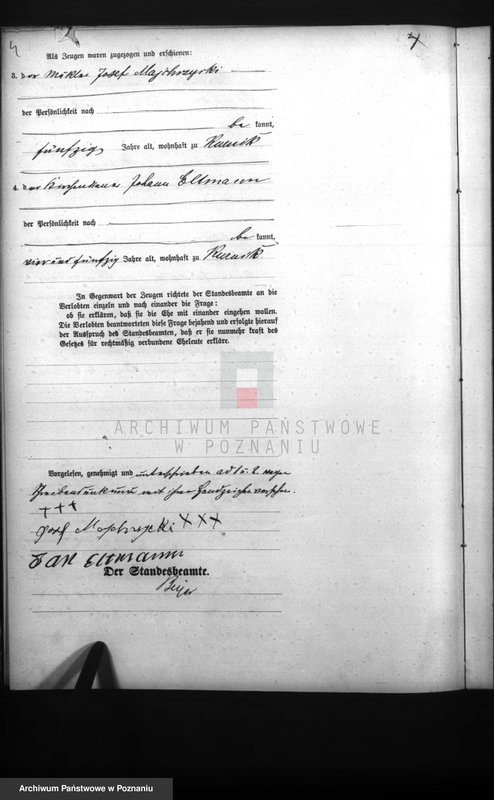 4
Als Zeugen waren zugezogen und erschienen:
3. der Mäkler Josef Majchrzycki
der Persönlichkeit nach
be kannt,
fünfzig Jahre alt, wohnhaft zu Kurnik
4. der Kirchendiener Johann Eltmann
der Persönlichkeit nach
be kannt,
vier und fünfzig Jahre alt, wohnhaft zu Kurnik
In Gegenwart der Zeugen richtete der Standesbeamte an die
Verlobten einzeln und nach einander die Frage:
ob sie erklären, daß sie die Ehe mit einander eingehen wollen.
Die Verlobten beantworteten diese Frage bejahend und erfolgte hierauf
der Ausspruch des Standesbeamten, daß er sie nunmehr kraft des
Gesetzes für rechtmäßig verbundene Eheleute erkläre.
ARCHIWUM PAŃSTWOWE
W POZNANIU
Vorgelesen, genehmigt und unterschrieben ad 1 u. 2. wegen
Schreibensunkunde mit ihren Handzeichen versehen.
+++
Josef Majchrzycki XXX
Jan Eltmann
Der Standesbeamte.
Archiwum Państwowe w Poznaniu